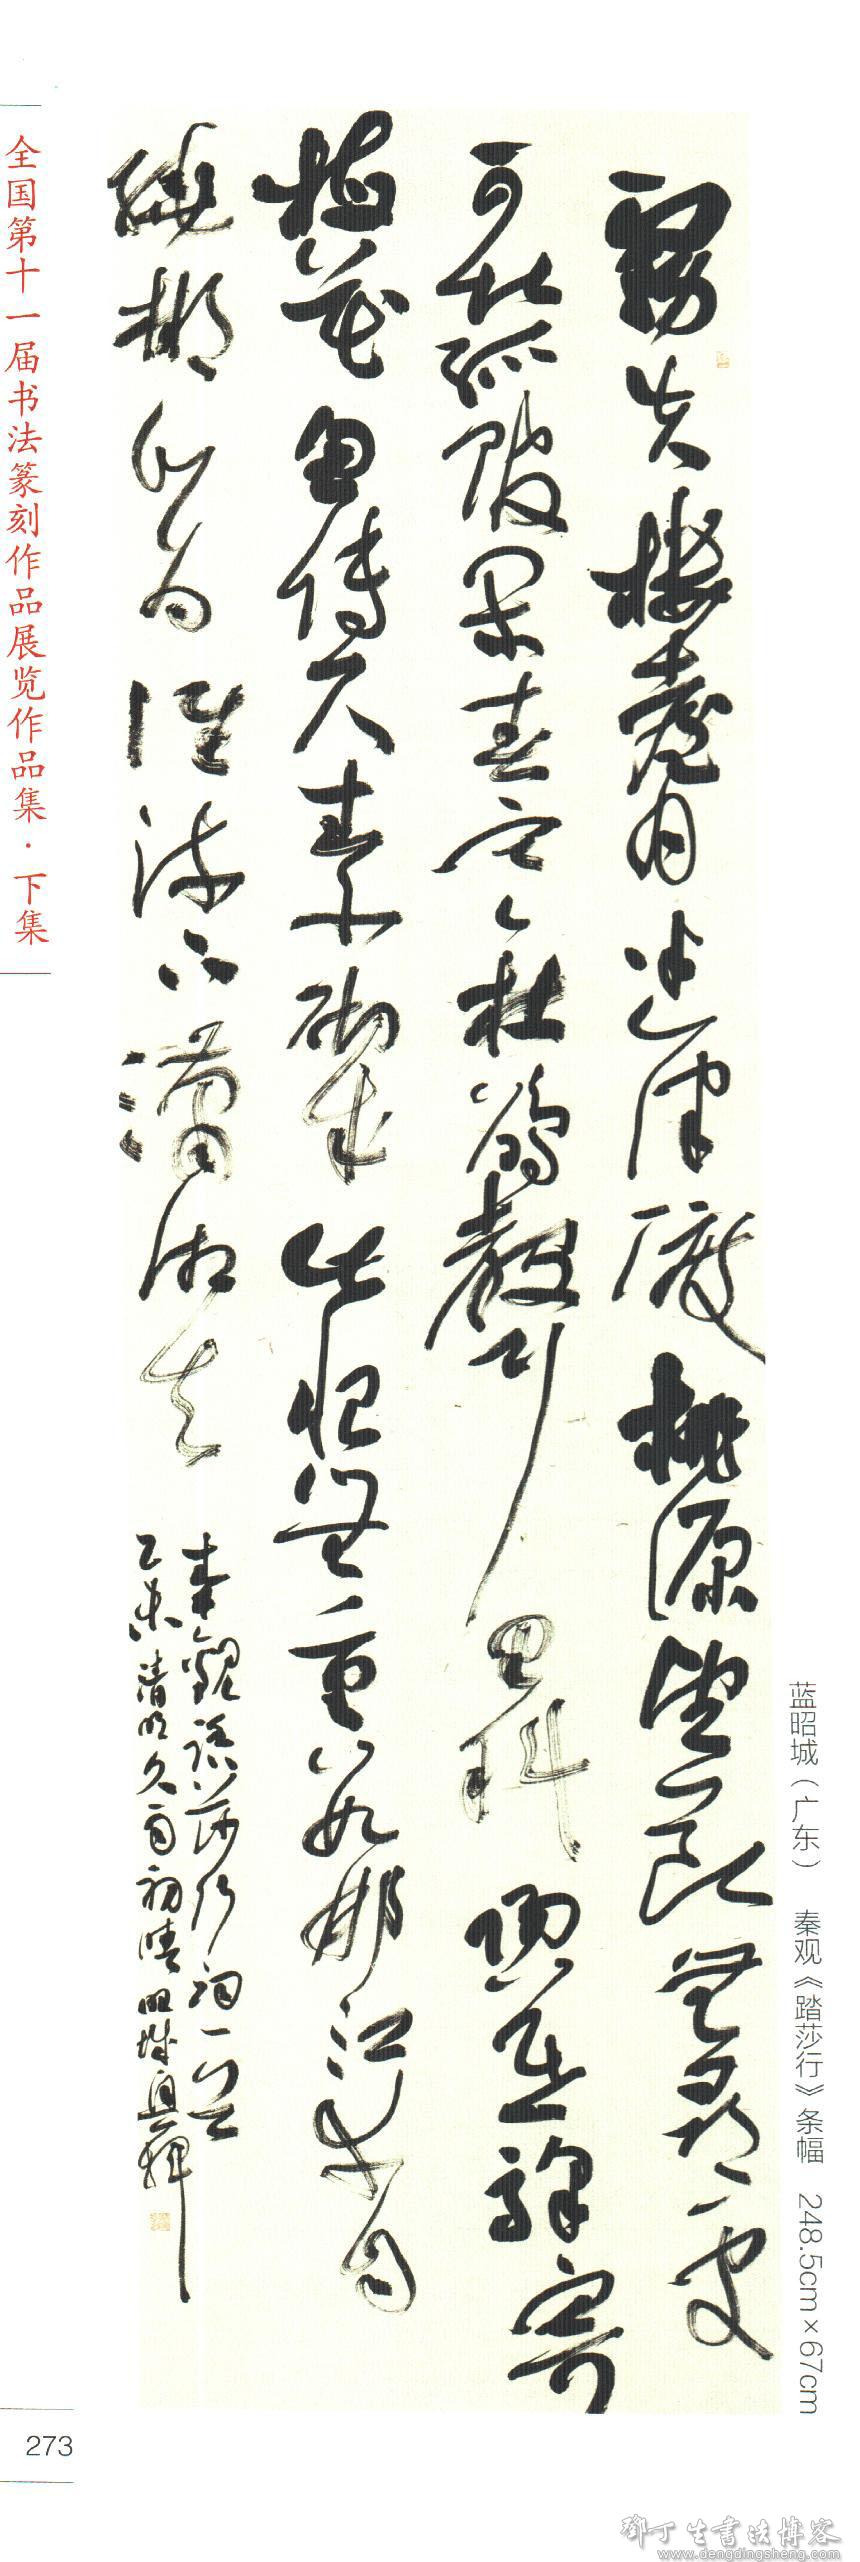 全国第十一届书法篆刻作品展览作品集·下集
霧失樓臺月迷津渡桃源望斷無尋處
可堪孤館閉春寒杜鵑聲裏斜陽暮驛寄
梅花魚傳尺素砌成此恨無重數郴江幸自
繞郴山為誰流下瀟湘去
秦觀踏莎行詞一首
乙未清明久雨初晴昭城
蓝昭城（广东） 秦观《踏莎行》条幅 248.5cm×67cm
273
邓丁生书法博客
www.dengdingsheng.com